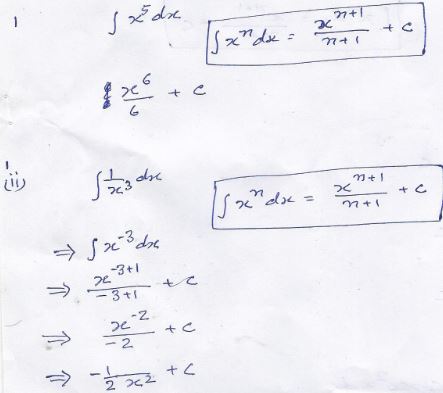 1 ∫ x⁵ dx ∫ xⁿ dx = xⁿ⁺¹/n+1 + c
x⁶/6 + c
(ii) ∫ 1/x³ dx ∫ xⁿ dx = xⁿ⁺¹/n+1 + c
⇒ ∫ x⁻³ dx
⇒ x⁻³⁺¹/-3+1 + c
⇒ x⁻²/-2 + c
⇒ -1/2x² + c